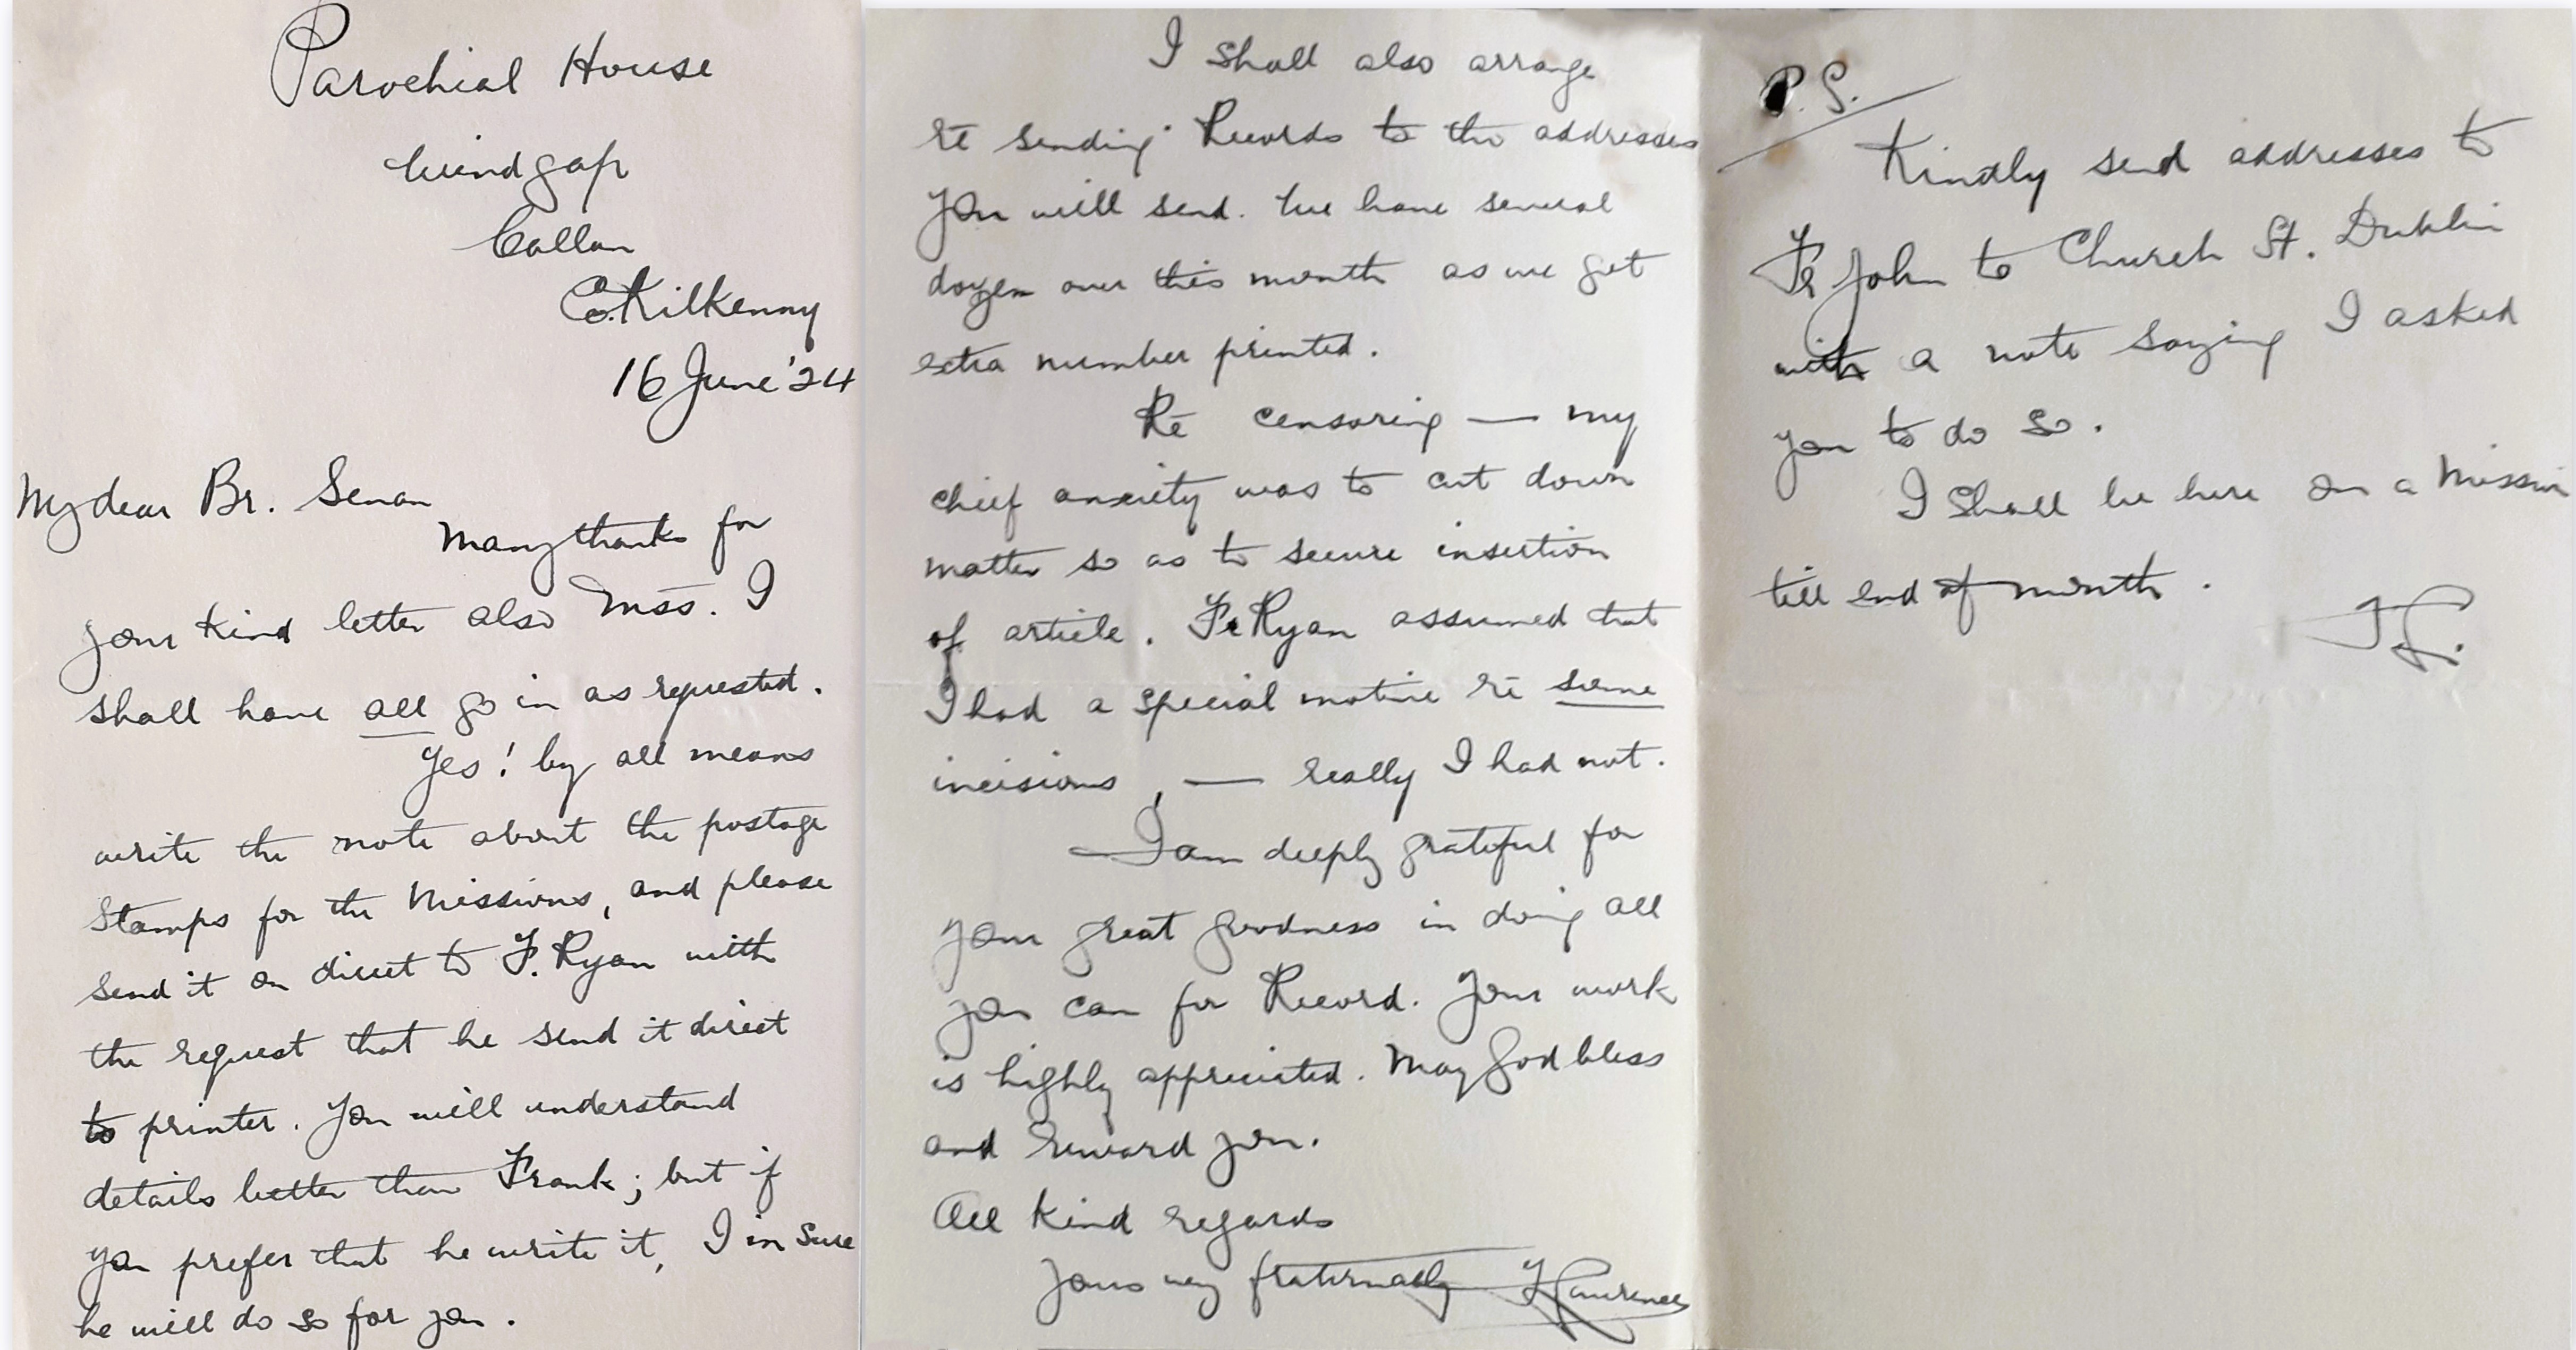 Parochial House
Windgap
Callan
Co. Kilkenny
16 June '24
My dear Br. Senan
Many thanks for
your kind letter also Mss. I
shall have all go in as requested.
Yes! by all means
write the note about the postage
stamps for the Missions, and please
send it on direct to F. Ryan with
the request that he send it direct
to printer. You will understand
details better than Frank; but if
you prefer that he write it, I in sure
he will do so for you.
I shall also arrange
re sending Records to the addresses
you will send. We have several
dozen over this month as we get
extra number printed.
Re censoring — my
chief anxiety was to cut down
matter so as to secure insertion
of article. Fr Ryan assumed that
I had a special motive re some
incisions, — really I had not.
I am deeply grateful for
your great goodness in doing all
you can for Record. Your work
is highly appreciated. May God bless
and reward you.
All kind regards
Yours very fraternally Fr Laurence
P.S.
Kindly send addresses to
Fr John to Church St. Dublin
with a note saying I asked
you to do so.
I shall be here on a Mission
till end of month.
F L.